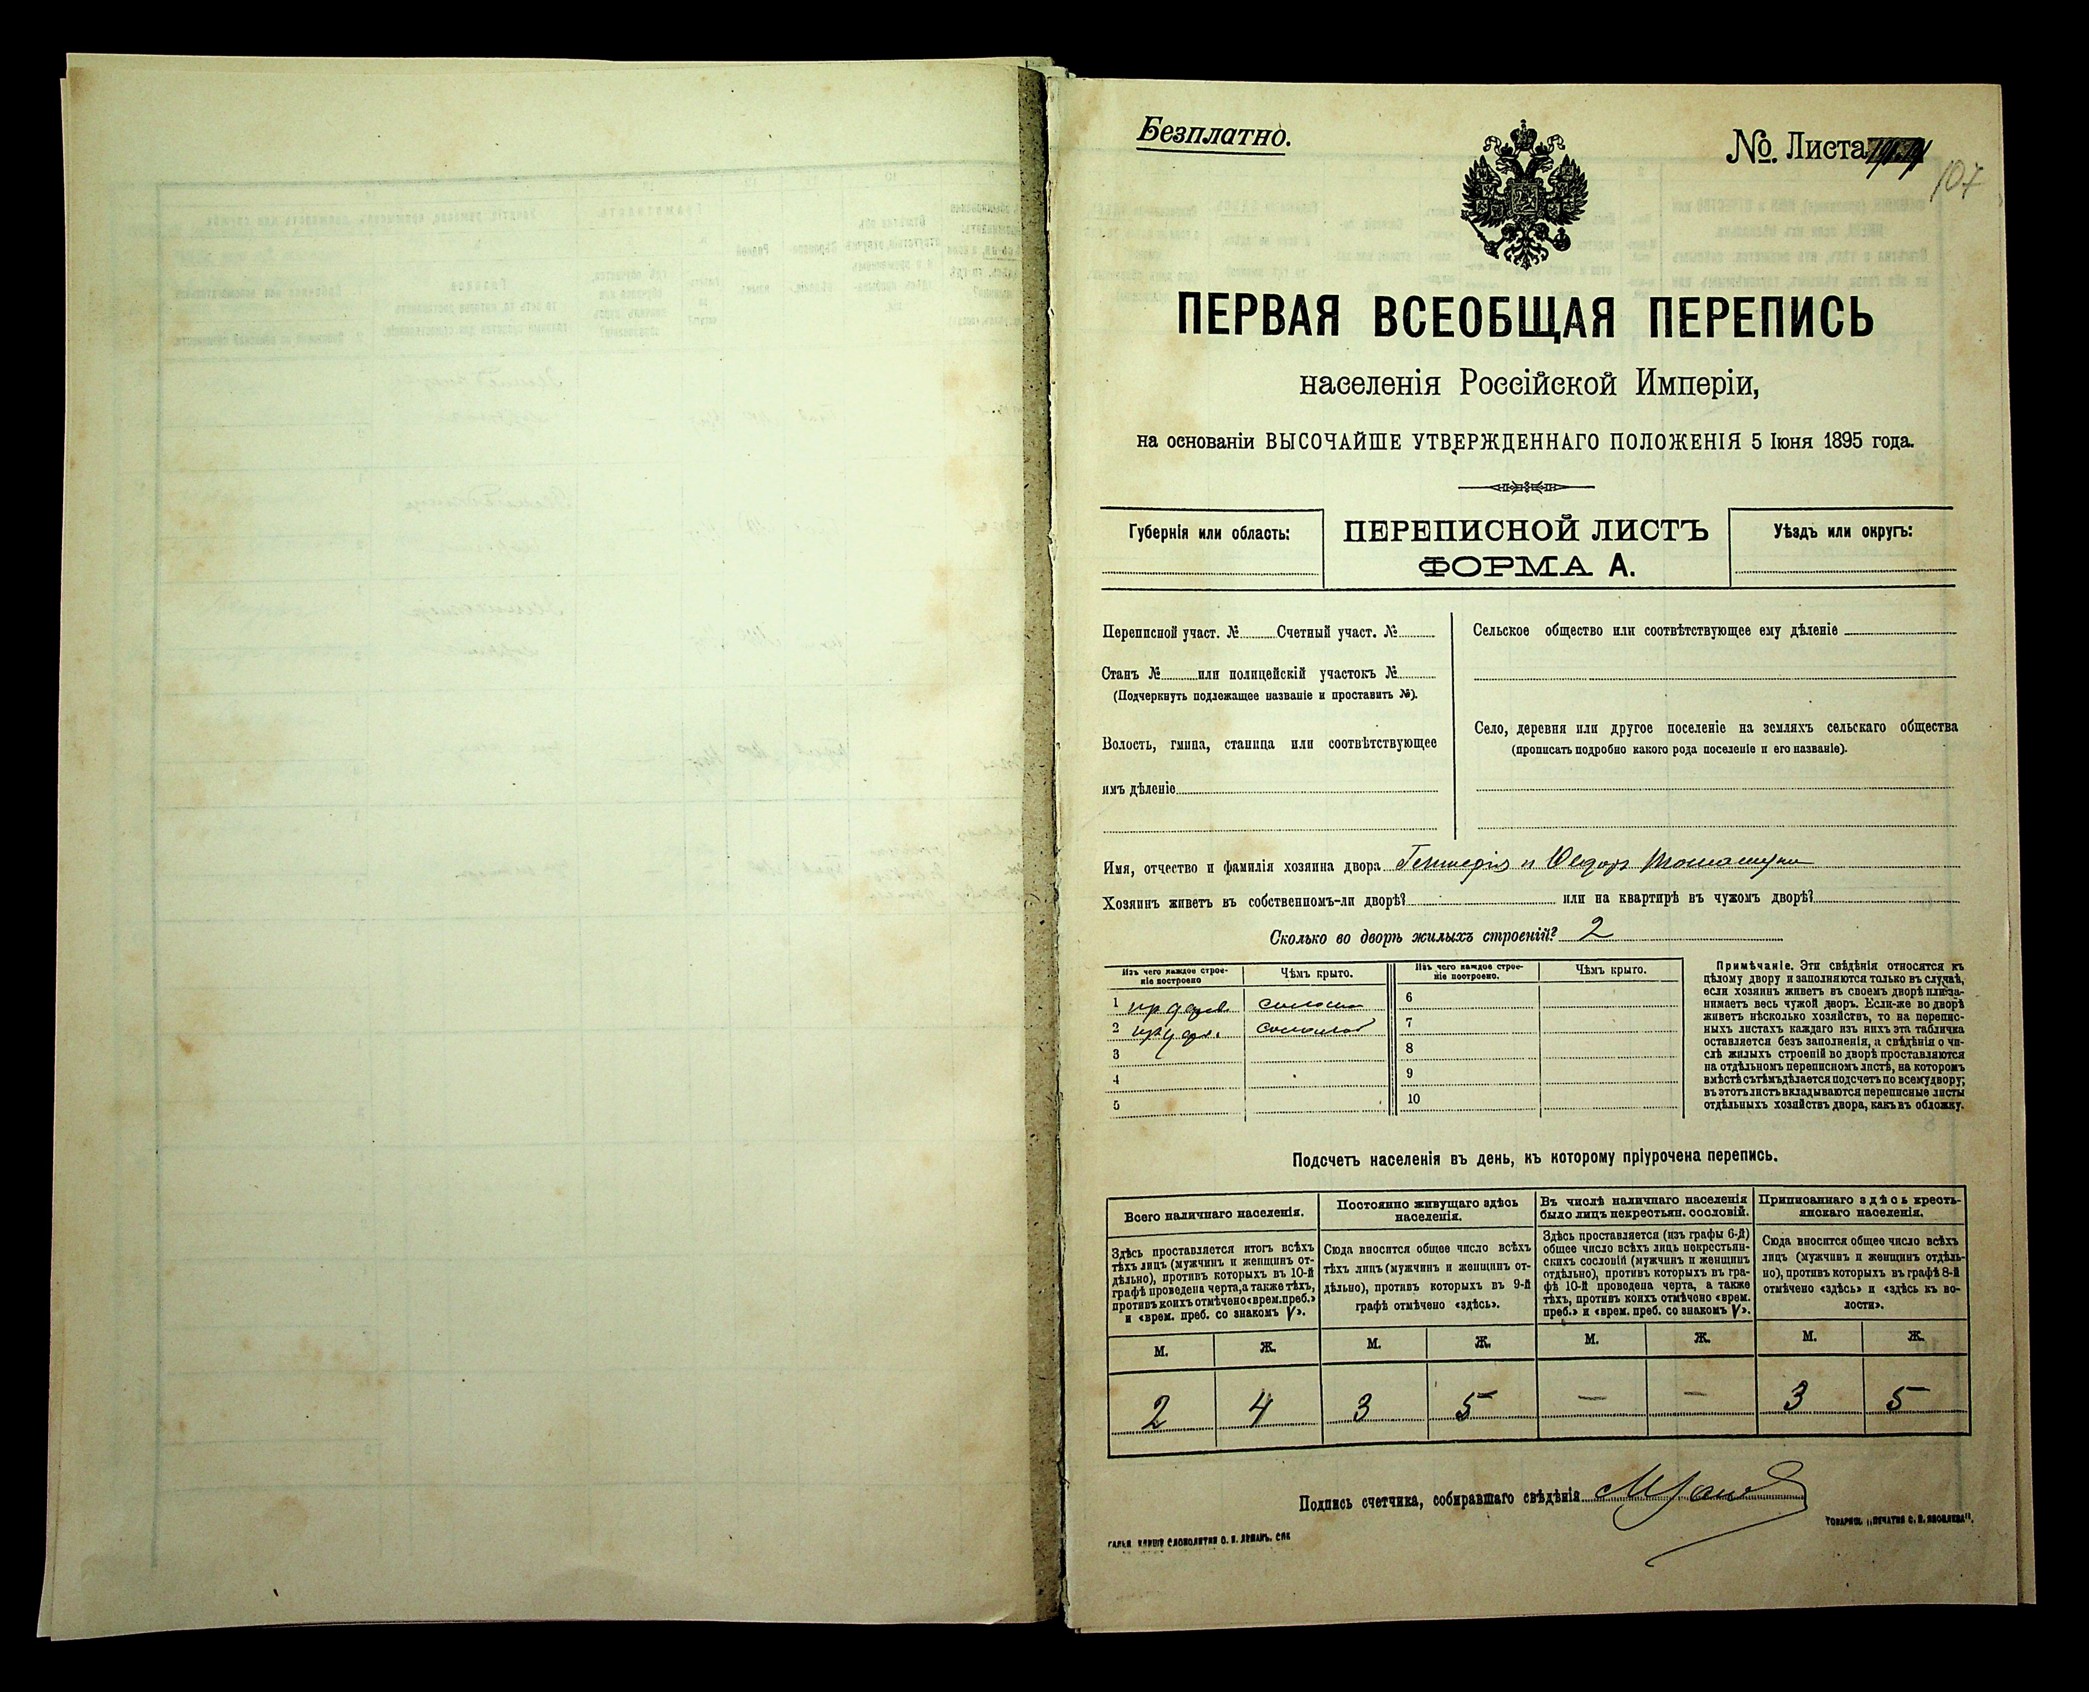 Безплатно.
№. Листа
107
ПЕРВАЯ ВСЕОБЩАЯ ПЕРЕПИСЬ
населенія Россійской Имперіи,
на основаніи ВЫСОЧАЙШЕ УТВЕРЖДЕННАГО ПОЛОЖЕНІЯ 5 Іюня 1895 года.
Губернія или область:
ПЕРЕПИСНОЙ ЛИСТЪ
ФОРМА А.
Уѣздъ или округъ:
Переписной участ. № Счетный участ. №
Станъ № или полицейскій участокъ №
(Подчеркнуть подлежащее названіе и проставить №).
Волость, гмина, станица или соотвѣтствующее
имъ дѣленіе
Сельское общество или соотвѣтствующее ему дѣленіе
Село, деревня или другое поселеніе на земляхъ сельскаго общества
(прописать подробно какого рода поселеніе и его названіе).
Имя, отчество и фамилія хозяина двора и
Хозяинъ живетъ въ собственномъ-ли дворѣ? или на квартирѣ въ чужомъ дворѣ?
Сколько во дворѣ жилыхъ строеній? 2
Изъ чего каждое строе-
ніе построено
Чѣмъ крыто.
Изъ чего каждое строе-
ніе построено.
Чѣмъ крыто.
1
2
3
4
5
6
7
8
9
10
Примѣчаніе. Эти свѣдѣнія относятся къ
цѣлому двору и заполняются только въ случаѣ,
если хозяинъ живетъ въ своемъ дворѣ или за-
нимаетъ весь чужой дворъ. Если-же во дворѣ
живетъ нѣсколько хозяйствъ, то на перепис-
ныхъ листахъ каждаго изъ нихъ эта табличка
оставляется безъ заполненія, а свѣдѣнія о чи-
слѣ жилыхъ строеній во дворѣ проставляются
на отдѣльномъ переписномъ листѣ, на которомъ
вмѣстѣ съ тѣмъ дѣлается подсчетъ по всему двору;
въ этотъ листъ вкладываются переписные листы
отдѣльныхъ хозяйствъ двора, какъ въ обложку.
Подсчетъ населенія въ день, къ которому пріурочена перепись.
Всего наличнаго населенія.
Здѣсь проставляется итогъ всѣхъ
тѣхъ лицъ (мужчинъ и женщинъ от-
дѣльно), противъ которыхъ въ 10-й
графѣ проведена черта, а также тѣхъ,
противъ коихъ отмѣчено «врем. преб.»
и «врем. преб. со знакомъ V».
Постоянно живущаго здѣсь
населенія.
Сюда вносится общее число всѣхъ
тѣхъ лицъ (мужчинъ и женщинъ от-
дѣльно), противъ которыхъ въ 9-й
графѣ отмѣчено «здѣсь».
Въ числѣ наличнаго населенія
было лицъ некрестьян. сословій.
Здѣсь проставляется (изъ графы 6-й)
общее число всѣхъ лицъ некрестьян-
скихъ сословій (мужчинъ и женщинъ
отдѣльно), противъ которыхъ въ гра-
фѣ 10-й проведена черта, а также
тѣхъ, противъ коихъ отмѣчено «врем.
преб.» и «врем. преб. со знакомъ V».
Приписаннаго здѣсь кресть-
янскаго населенія.
Сюда вносится общее число всѣхъ
лицъ (мужчинъ и женщинъ отдѣль-
но), противъ которыхъ въ графѣ 8-й
отмѣчено «здѣсь» и «здѣсь къ во-
лости».
М. Ж. М. Ж. М. Ж. М. Ж.
2 4 3 5 — — 3 5
Подпись счетчика, собиравшаго свѣдѣнія